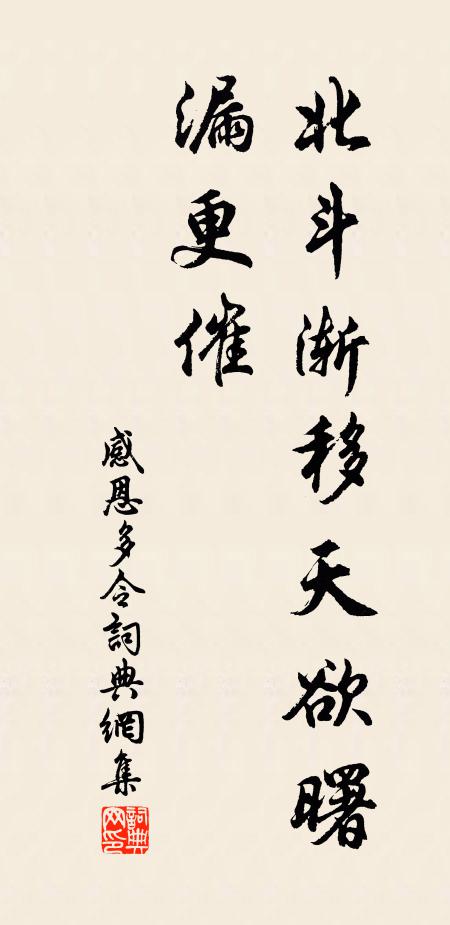 北斗渐移天欲曙
漏更催
感恩多令詞典網集
詞典网印